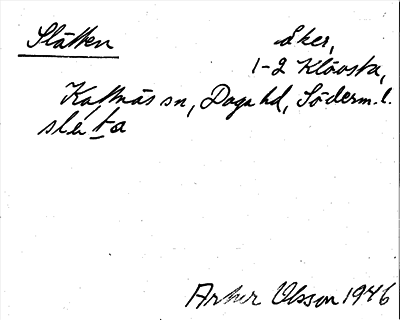 Slätten åker,
1-2 Klövsta,
Kattnäs sn, Daga hd, Söderm. l.
slɛta
Arthur Olsson 1946